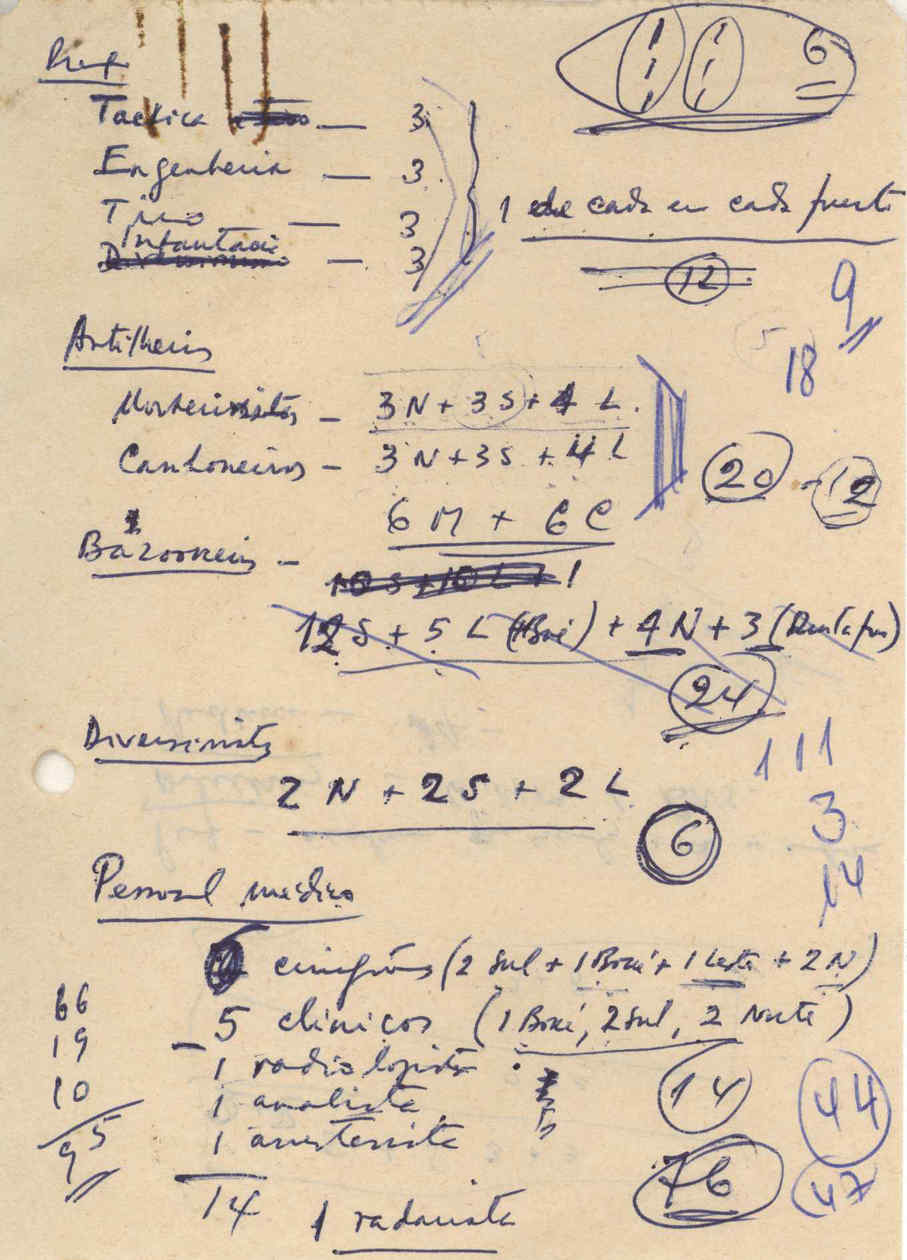 Prof
6
Tactica — 3
Engenheria — 3
Tiro — 3
Infantaria — 3
1 de cada em cada frente
12
9
5
18
Artilheiros
Morteiristas – 3N + 3S + 4 L
Canhoneiros – 3N + 3S + 4 L
20 – 12
6 M + 6 C
Bazookeiros –
10 S + 10 L + 1
12 S + 5 L (Boé) + 4 N + 3
24
Diversionistas
111
2 N + 2 S + 2 L
3
6
14
Pessoal médico
6 cirurgiões (2 Sul + 1 Boké + 1 Leste + 2 N)
66
– 5 clinicos (1 Boké, 2 Sul, 2 Norte)
19
1 radiologista
10
1 analista
14
44
95
1 anestesista
76
47
14
1 radarista